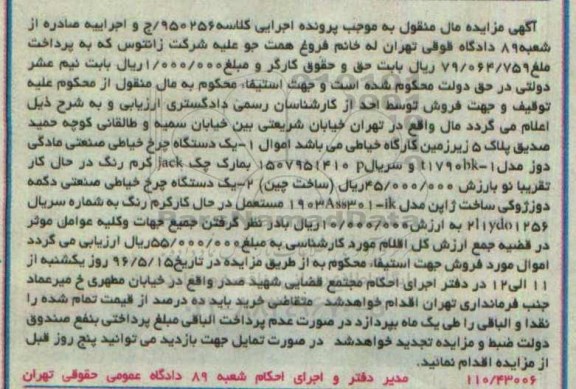 آگهی مزایده مال منقول به موجب پرونده اجرایی کلاسه۹۵۰۲۵۶/ج و اجراییه صادره از
شعبه۸۹ دادگاه قوقی تهران له خانم فروغ همت جو علیه شرکت زانتوس که به پرداخت
ملغ۷۹/۰۶۴/۷۵۹ ریال بابت حق و حقوق کارگر و مبلغ۱/۰۰۰/۰۰۰ریال بابت نیم عشر
دولتی در حق دولت محکوم شده است و جهت استیفاء محکوم به مال منقول از محکوم علیه
توقیف و جهت فروش توسط احد از کارشناسان رسمی دادگستری ارزیابی و به شرح ذیل
اعلام می گردد مال واقع در تهران خیابان شریعتی بین خیابان سمیه و طالقانی کوچه حمید
صدیق پلاک ۵ زیرزمین کارگاه خیاطی می باشد اموال ۱-یک دستگاه چرخ خیاطی صنعتی مادگی
دوز مدل۱-t۱۷۹۰bk و سریالp ۱۵۰۷۹۵۱۴۱۰ بمارک جک jack کرم رنگ در حال کار
تقریبا نو بارزش ۴۵/۰۰۰/۰۰۰ریال (ساخت چین) ۲-یک دستگاه چرخ خیاطی صنعتی دکمه
دوزژوکی ساخت ژاپن مدل ۱۹۰۳Ass۳۰۱-ik مستعمل در حال کارکرم رنگ به شماره سریال
۲l۱ydo۱۲۵۶ به ارزش۱۰/۰۰۰/۰۰۰ریال بادر نظر گرفتن جمیع جهات وکلیه عوامل موثر
در قضیه جمع ارزش کل اقلام مورد کارشناسی به مبلغ۵۵/۰۰۰/۰۰۰ریال ارزیابی می گردد
اموال مورد فروش جهت استیفاء محکوم به از طریق مزایده در تاریخ۹۶/۵/۱۵ روز یکشنبه از
۱۱ الی۱۲ در دفتر اجرای احکام مجتمع قضایی شهید صدر واقع در خیابان مطهری خ میرعماد
جنب فرمانداری تهران اقدام خواهدشد متقاضی خرید باید ده درصد از قیمت تمام شده را
نقدا و الباقی را طی یک ماه بپردازد در صورت عدم پرداخت الباقی مبلغ پرداختی بنفع صندوق
دولت ضبط و مزایده تجدید خواهدشد در صورت تمایل جهت بازدید می توانید پنج روز قبل
از مزایده اقدام نمائید.
۱۱۰/۴۳۰۰۶ مدیر دفتر و اجرای احکام شعبه ۸۹ دادگاه عمومی حقوقی تهران